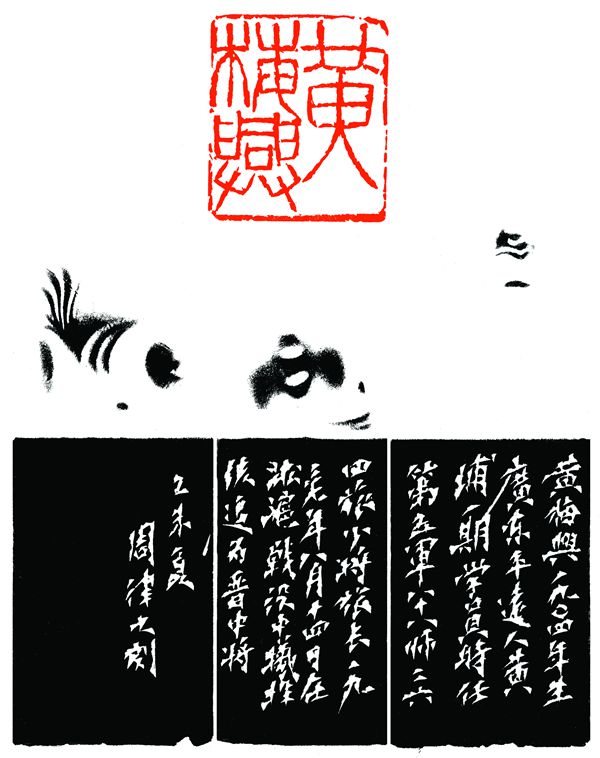 黄梅興
黄梅興一九〇四年生
廣东平遠人黄
埔一期学员時任
第五軍八十八师二六
四旅少将旅长一九
三七年八月十四日在
淞滬戰役中犧牲
後追为晋中将
乙未夏
周律之刻